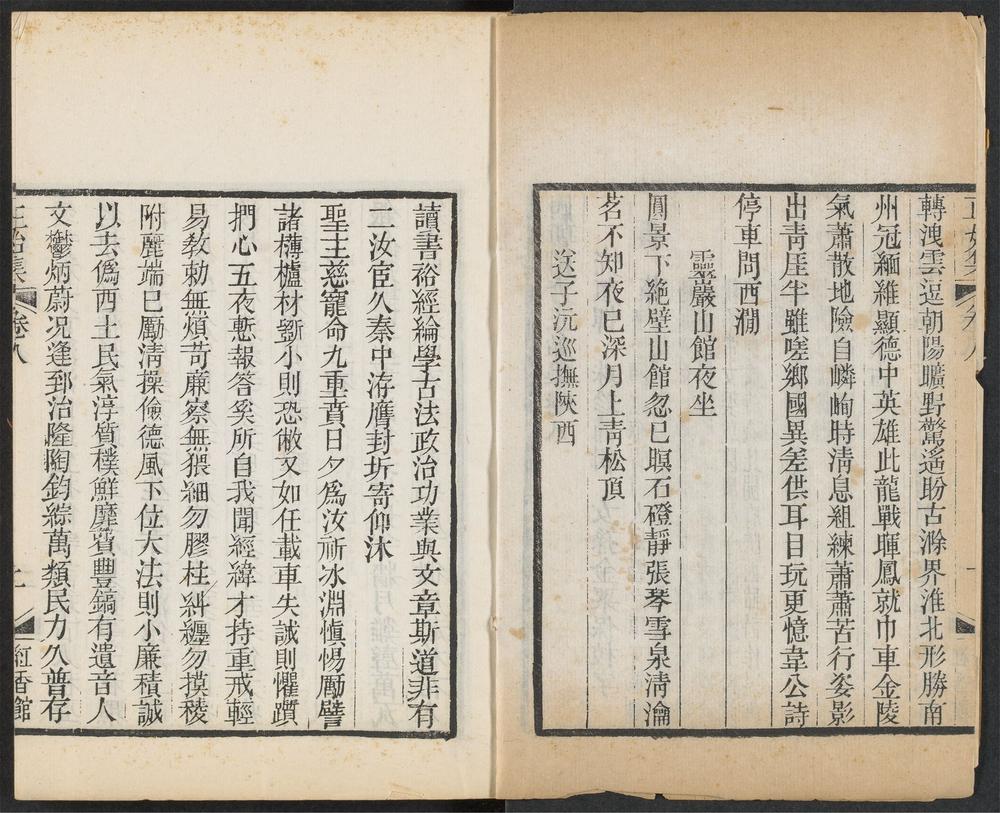 轉洩雲逗朝陽曠野驚遙盼古滁界淮北形勝南
州冠緬維顯德中英雄此龍戰暉鳳就巾車金陵
氣蕭散地險自嶙峋時淸息組練蕭蕭苦行姿影
出靑厓半雖嗟鄉國異差供耳目玩更憶韋公詩
停車問西澗
靈巖山館夜坐
圓景下絶壁山館忽已暝石磴靜張琴雪泉淸瀹
茗不知夜已深月上靑松頂
送子沅巡撫陝西
讀書裕經綸學古法政治功業與文章斯道非有
二汝宦久秦中洊膺封圻寄仰沐
聖主慈寵命九重賁日夕爲汝祈冰淵愼惕勵譬
諸欂櫨材斵小則恐敝又如任載車失誠則懼躓
捫心五夜慙報答奚所自我聞經緯才持重戒輕
易敎勅無煩苛廉察無猥細勿膠柱糾纒勿摸稜
附麗端已勵淸操儉德風下位大法則小廉積誠
以去僞西土民氣淳質樸鮮靡費豐鎬有遺音人
文鬱炳蔚况逢郅治隆陶鈞綜萬類民力久普存
正始集
卷八
紅香館